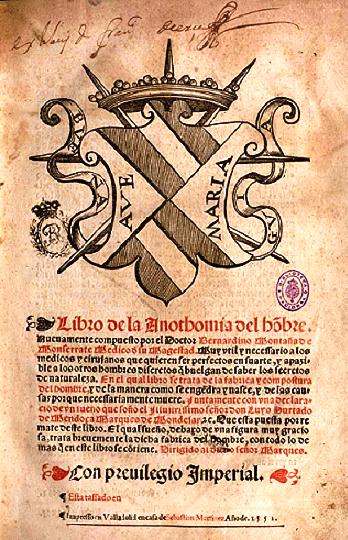 AVE
MARIA
Libro de la Anothomia del hõbre.
Nueuamente compuesto por el Doctor Bernardino Montaña de
Monserrate Medico de su Magestad. Muy vtil y necessario a los
medicos y cirujanos que quieren ser perfectos en su arte, y apazi
ble a los otros hombres discretos q̃ huelgan de saber los secretos
de naturaleza. En el qual libro se trata de la fabrica y compostura
del hombre, y de la manera como se engẽdra y nasce, y de las cau
sas porque necessariamente muere. Juntamente con vna declara
cio de vn sueño que soño el Illustrissimo señor don Luys Hurtado
de Mendoça Marques de Mondejar &c. Que esta puesta por re
mate deste libro. El qual sueño, debaxo de vna figura muy gracio
sa, trata breuemente la dicha fabrica del hombre, con todo lo de
mas q̃ en este libro se cõtiene. Dirigido al dicho señor Marques.
Con preuilegio Imperial.
¶ Esta tassado en
Impresso en Valladolid en casa de Sebastian Martinez Año de. 1551.